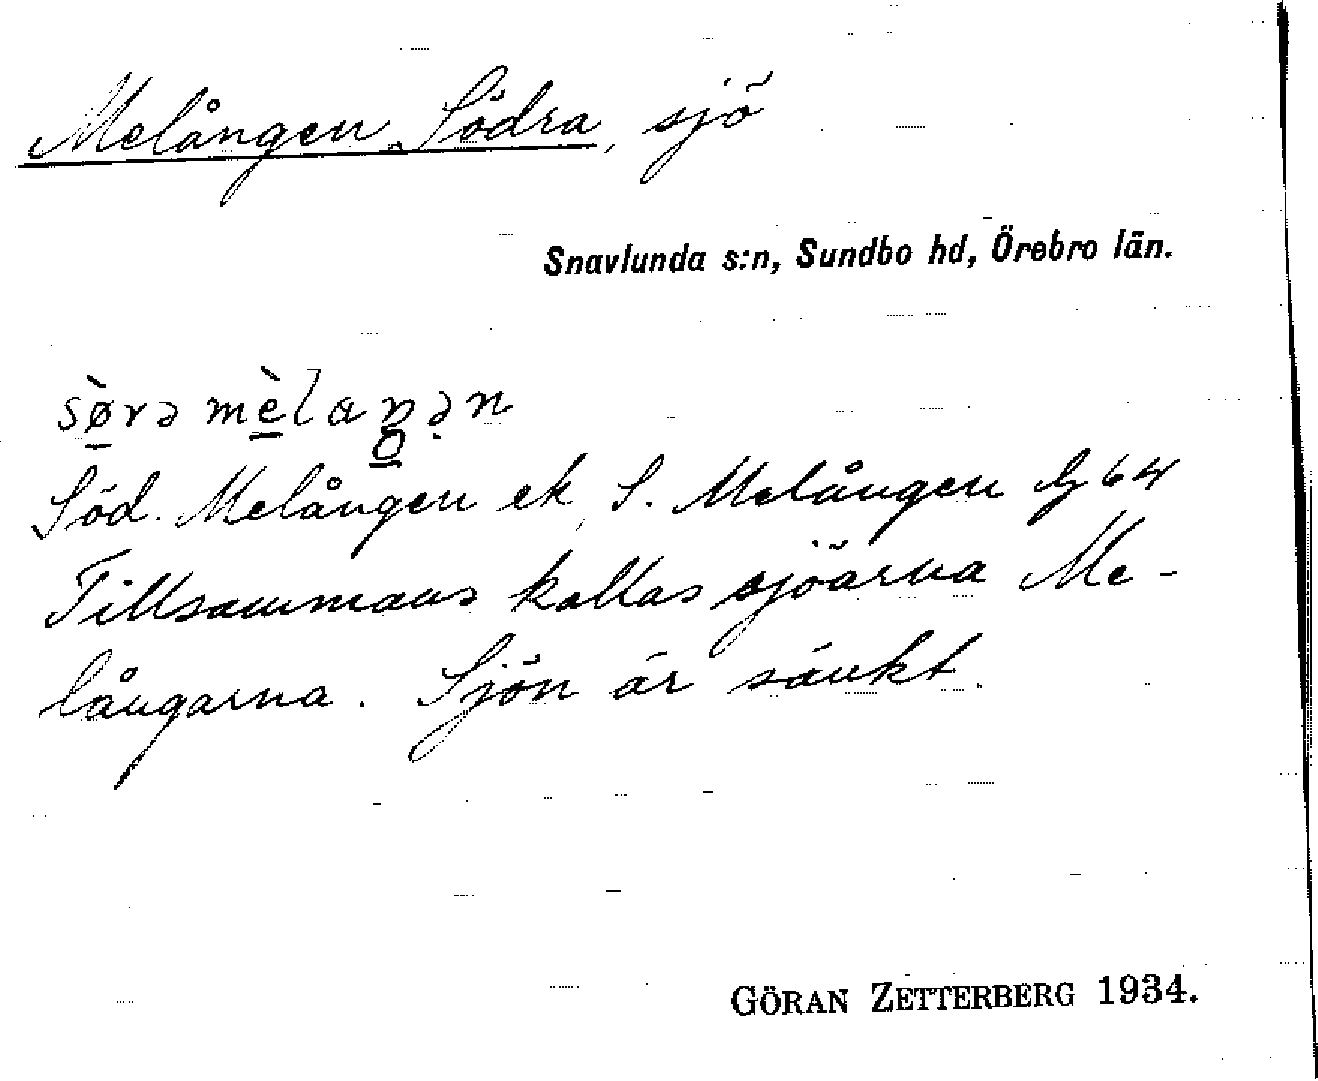 Melången, Södra, sjö
Snavlunda s:n, Sundbo hd, Örebro län.
Söd. Melången ek, S. Melången Gj 64
Tillsammans kallas sjöarna Me-
långarna. Sjön är sänkt.
GÖRAN ZETTERBERG 1934.